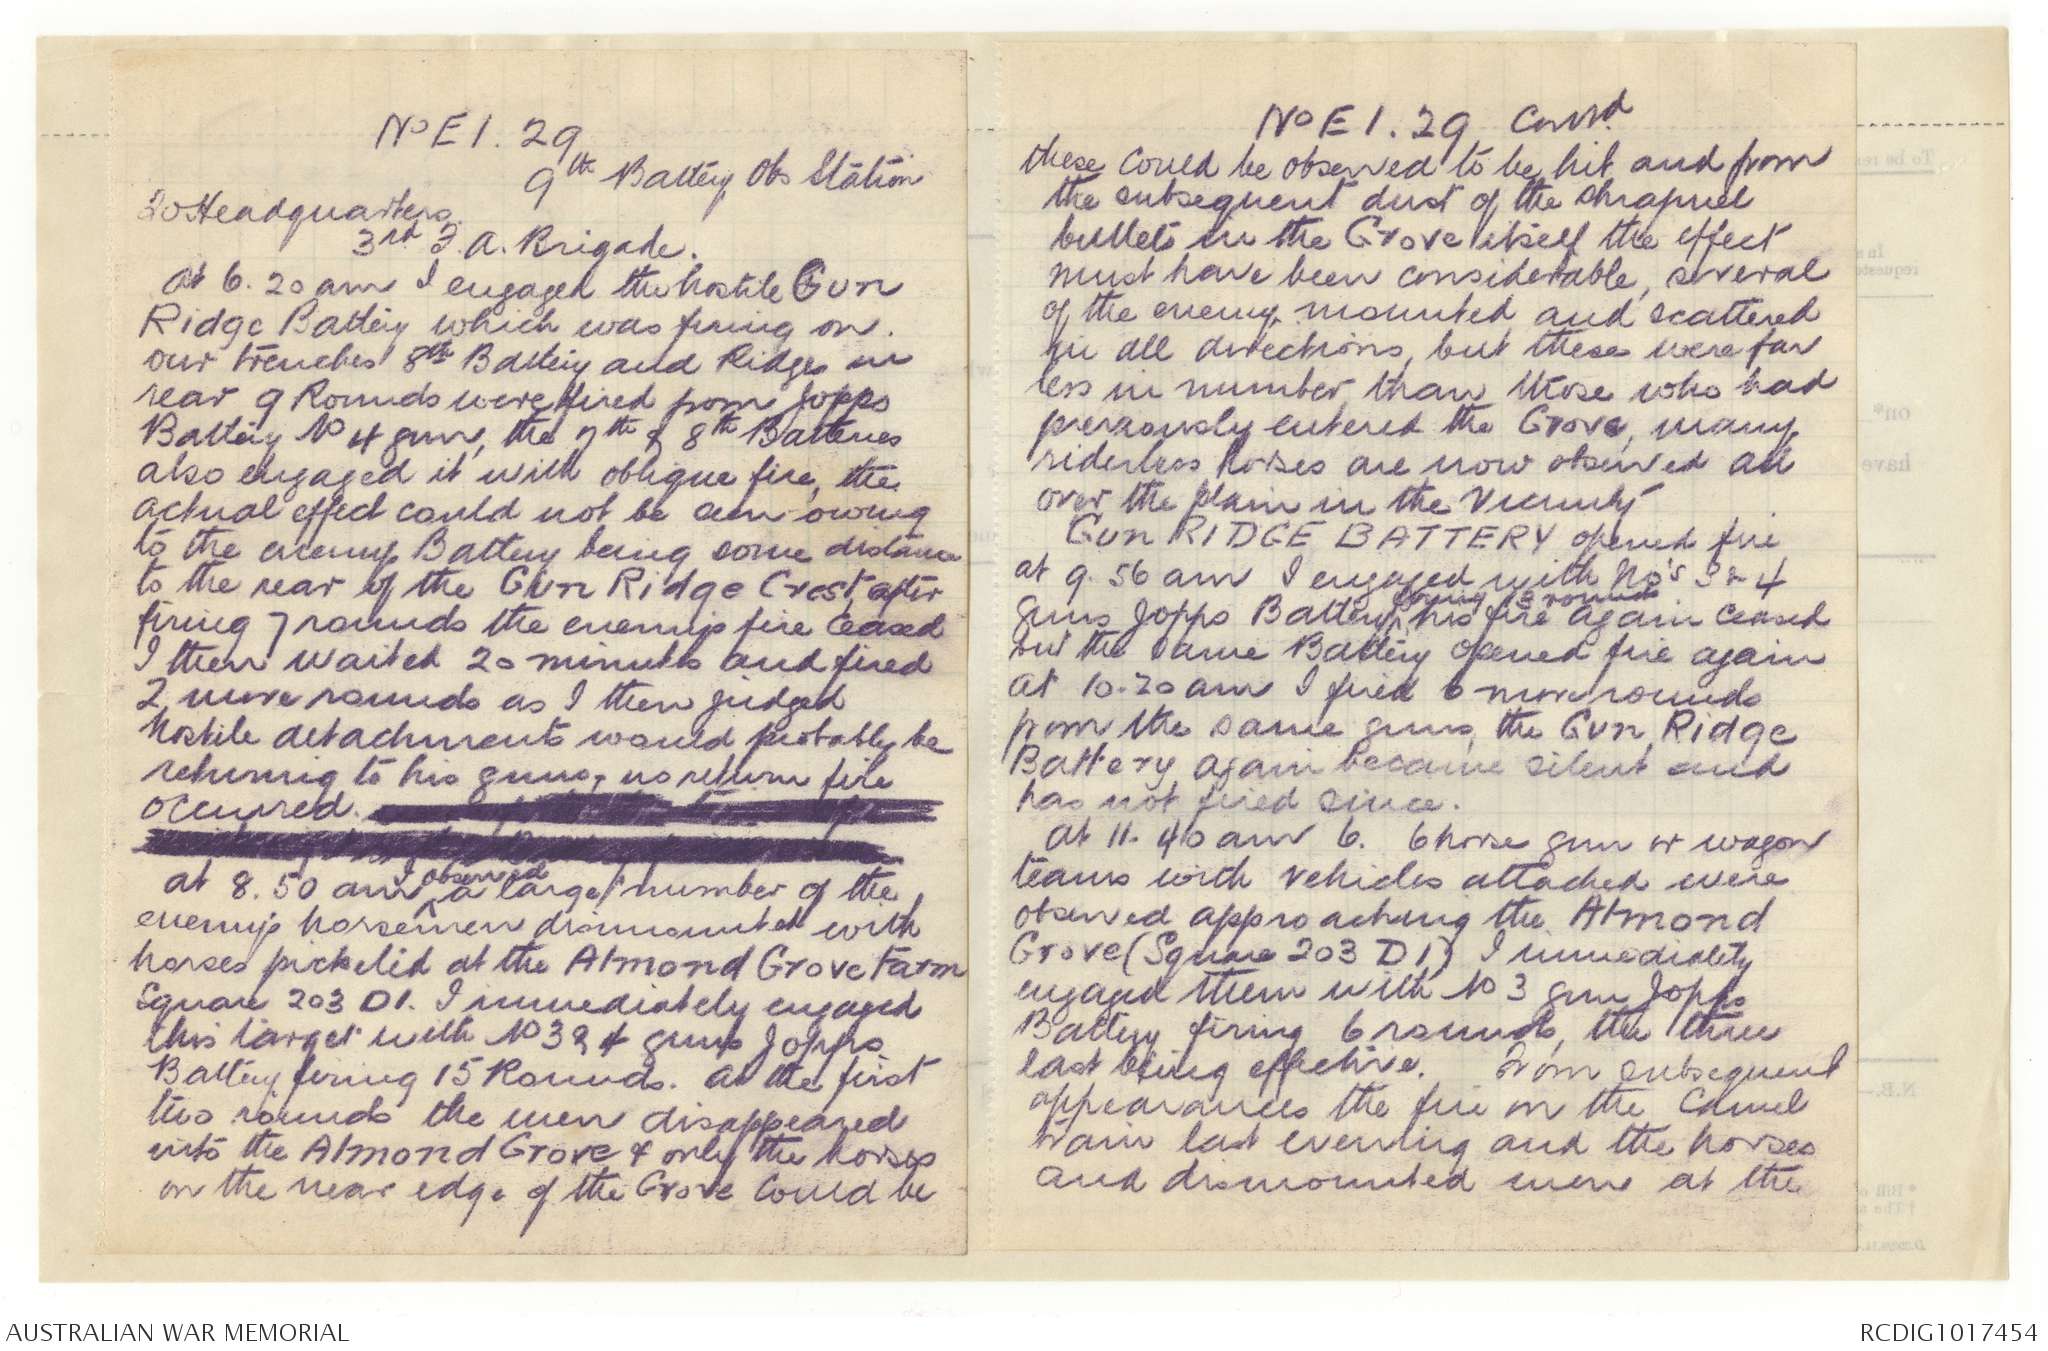 No E 1. 29
9th Battery Obs Station
To Headquarters.
3rd F.A. Brigade.
at 6.20 am I engaged the hostile Gun
Ridge Battery which was firing on.
our trenches 8th Battery and Ridges in
rear 9 Rounds were fired from Jopps
Battery No 4 gun, the 7th & 8th Batteries
also engaged it with oblique fire, the
actual effect could not be seen owing
to the enemy Battery being some distance
to the rear of the Gun Ridge Crest, after
firing 7 rounds the enemy's fire ceased
I then waited 20 minutes and fired
2 more rounds as I then judged
hostile detachments would probably be
returning to his guns, no return fire
occurred.
at 8.50 am I observed a large number of the
enemy's horsemen dismounted with
horses picketed at the Almond Grove Farm
Square 203 D1. I immediately engaged
this target with No 3 & 4 guns Jopps
Battery firing 15 Rounds. At the first
two rounds the men disappeared
into the Almond Grove & only the horses
on the near edge of the Grove could be
No E 1. 29 Contd
these could be observed to be hit and from
the subsequent dust of the shrapnel
bullets in the Grove itself the effect
must have been considerable, several
of the enemy mounted and scattered
in all directions, but these were far
less in number than those who had
previously entered the Grove, many
riderless horses are now observed all
over the plain in the vicinity
Gun RIDGE BATTERY opened fire
at 9.56 am I engaged with No's 3 & 4
Guns Jopps Battery, firing rounds his fire again ceased
but the same Battery opened fire again
at 10.20 am I fired 6 more rounds
from the same guns, the Gun Ridge
Battery again became silent and
has not fired since.
at 11.40 am 6. 6 horse gun or wagon
teams with vehicles attached were
observed approaching the Almond
Grove (Square 203 D1) I immediately
engaged them with No 3 gun Jopps
Battery firing 6 rounds, the three
last being effective. From subsequent
appearances the fire on the Camel
train last evening and the horses
and dismounted men at the
AUSTRALIAN WAR MEMORIAL
RCDIG1017454